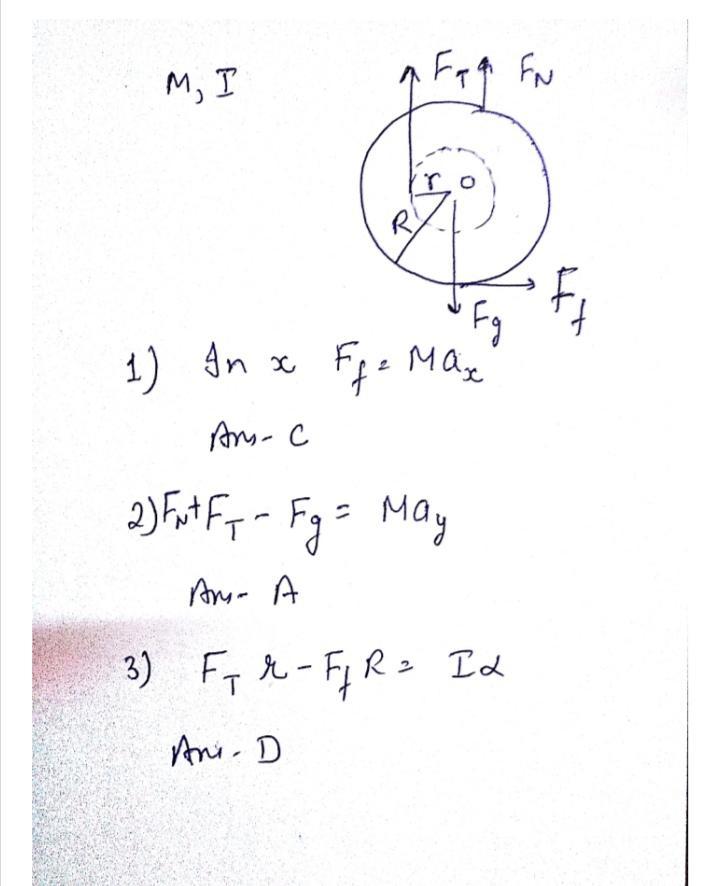 M, I
F_T F_N
r o
R
F_f
F_g
1) In x F_f = Ma_x
Ans- C
2) F_N + F_T - F_g = Ma_y
Ans- A
3) F_T r - F_f R = Iα
Ans- D